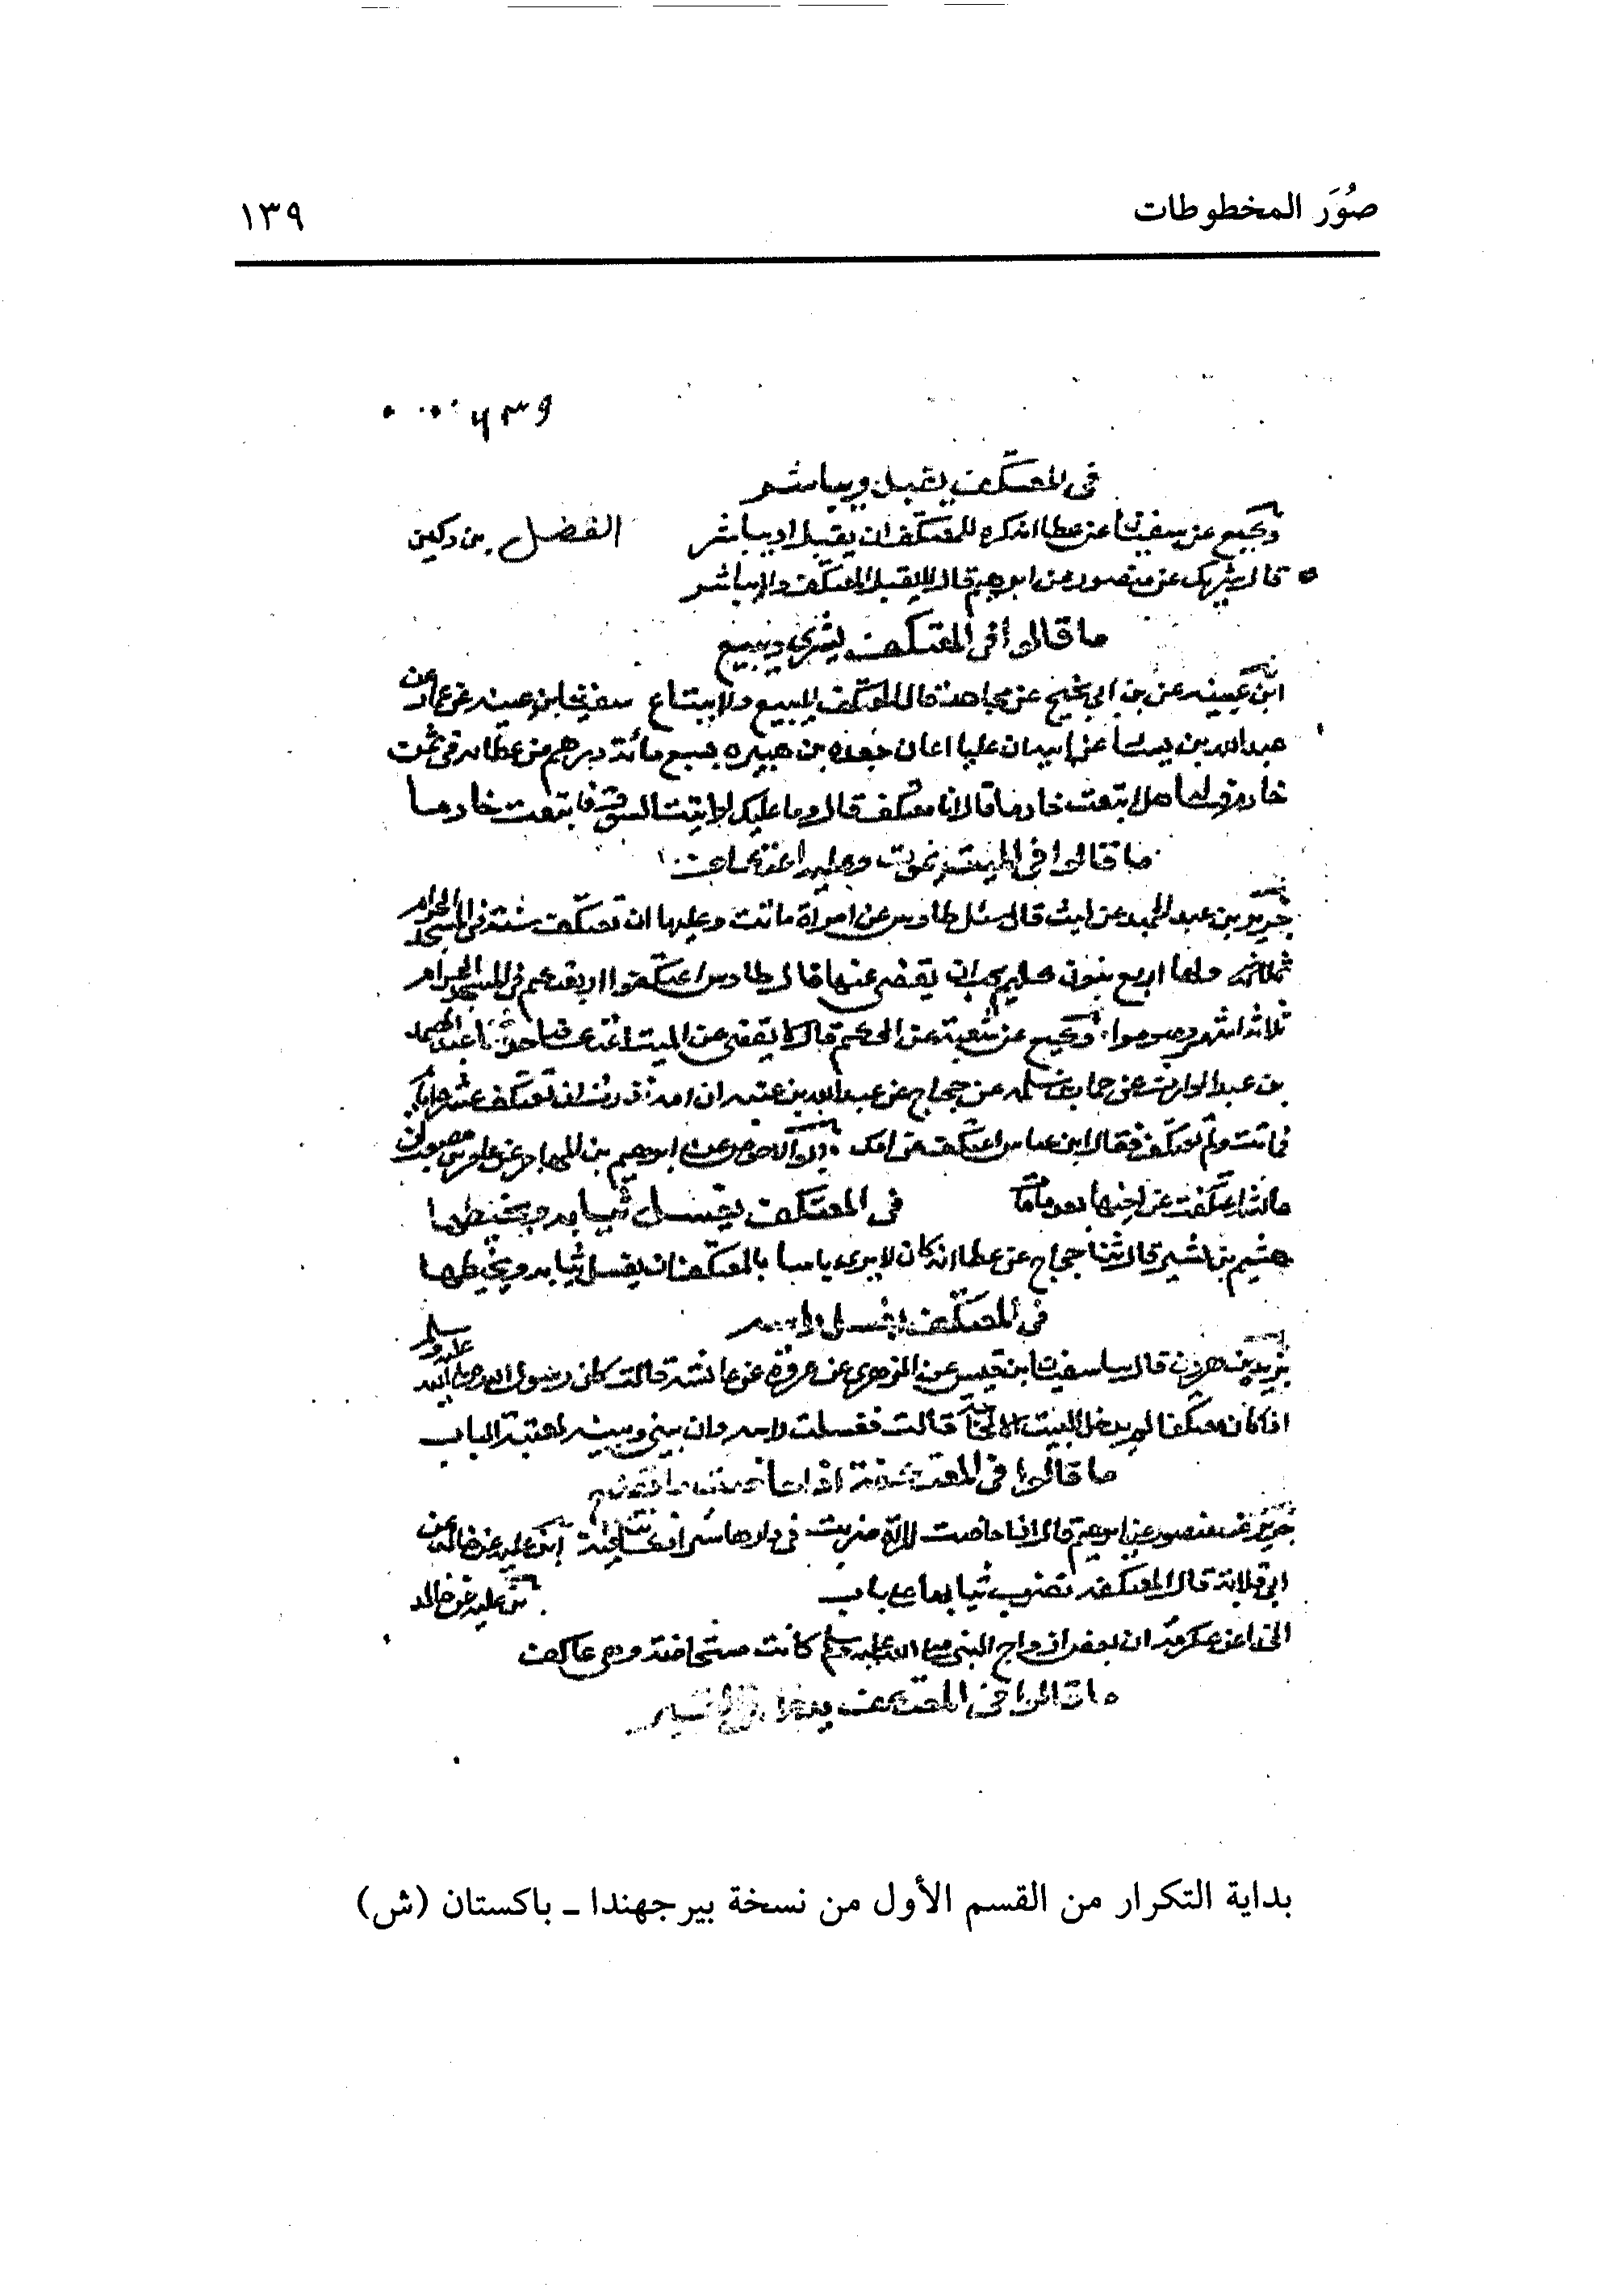 صُوَر المخطوطات
١٣٩
٦٣٩
فى المعتكف يقبل ويباشر
وكيع عن سفين عن عطا انه كره للمعتكف ان يقبل او يباشر الفضل بن دكين
قال شريك عن منصور عن ابرهيم قال لا يقبل المعتكف ولا يباشر
ما قالوا فى المعتكف يشترى ويبيع
ابن عيينه عن بن ابى نجيح عن مجاهد قال المعتكف لا يبيع ولا يبتاع سفين ابن عيينه عن عمار عن
عبد الله بن يسار عن ابيه ان عليا اعان جعده بن هبيره بسبع مائة درهم من عطايه فى ثمن
خادم هل ابتعت خادما قال انا معتكف قال وما عليك لو اتيت السوق فابتعت خادما
ما قالوا فى الميت يموت وعليه اعتكاف
جرير بن عبد الحميد عن ليث قال سئل طاوس عن امراة ماتت وعليها ان تعتكف سنة فى المسجد الحرام
ولها اربع بنون كلهم يحب ان يقضى عنها قال طاوس اعتكفوا اربعتكم فى المسجد الحرام
ثلاثة اشهر وصوموا وكيع عن شعبة عن الحكم قال لا يقضى عن الميت اعتكاف حدثنا عبد الصمد
بن عبد الوارث عن حماد بن سلمه عن حجاج عن عبد الله بن عتبه ان امه نذرت ان تعتكف عشرة ايام
فماتت ولم تعتكف فقال ابن عباس اعتكف عن امك ابو الاحوص عن ابرهيم بن المهاجر عن عامر بن مصعب ان
عائشة اعتكفت عن اخيها بعد ما مات فى المعتكف يغسل ثيابه ويخيطها
هشيم بن بشير قال ثنا حجاج عن عطا انه كان لا يرى باسا بالمعتكف ان يغسل ثيابه ويخيطها
فى المعتكف يغسل راسه
يزيد بن هرون قال سفين ابن عن الزهرى عن عروة عن عائشة قالت كان رسول الله صلى الله عليه وسلم
اذا كان معتكفا لم يدخل البيت الا لحاجة قالت فغسلت راسه وان بينى وبينه لعتبة الباب
ما قالوا فى المعتكفة اذا حاضت ما تصنع
جرير عن منصور عن ابرهيم قال اذا حاضت المراة ضربت فى دارها ابن علية عن خالد عن
ابى قلابة قال المعتكفه تضرب ثيابها على باب بن علية عن خالد
الحذا عن عكرمة ان بعض ازواج النبى صلى الله عليه وسلم كانت مستحاضة وهى عاكف
ما قالوا فى المعتكف يدخل
بداية التكرار من القسم الأول من نسخة بيرجهندا ـ باكستان (ش)